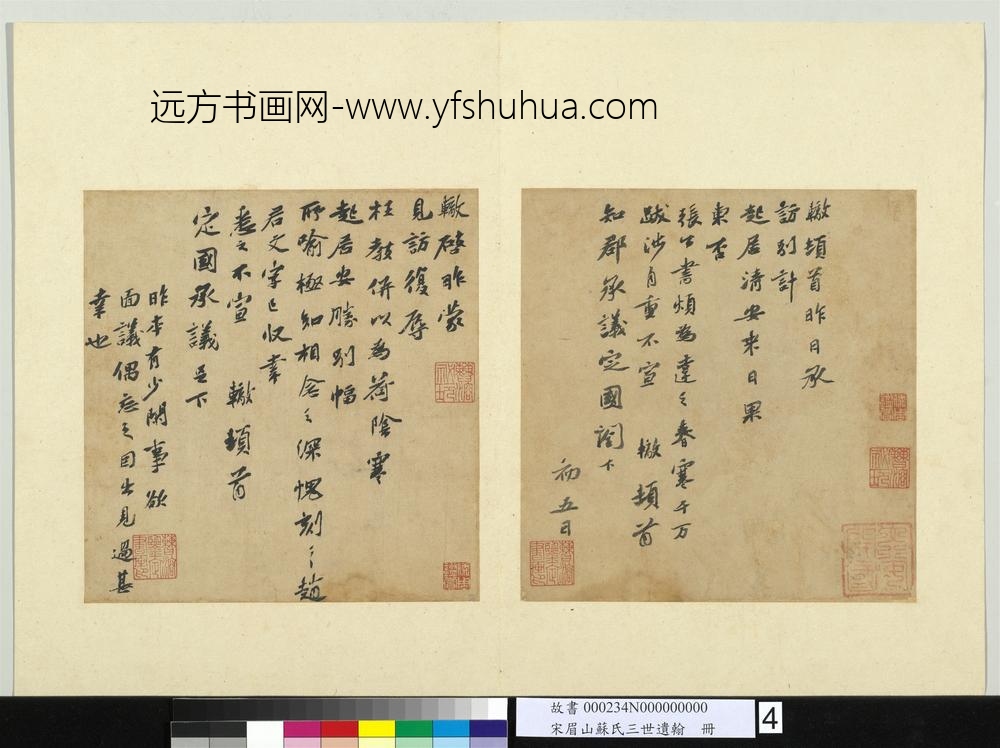 远方书画网-www.yfshuhua.com
轍頓首昨日承
訪別計
起居清安来日果
東否
張公書煩為達之春寒千万
跋涉自重不宣 轍頓首
知郡承議定國閣下
初五日
轍啓昨蒙
見訪復辱
枉教併以為荷陰寒
起居安勝別幅
所喻極知相念之深愧刻〻趙
君文字已收幸
悉之不宣 轍頓首
定國承議足下
昨夲有少閑事欲
面議偶忘之因出見過甚
幸也
故書 000234N000000000
宋眉山蘇氏三世遺翰 冊
4